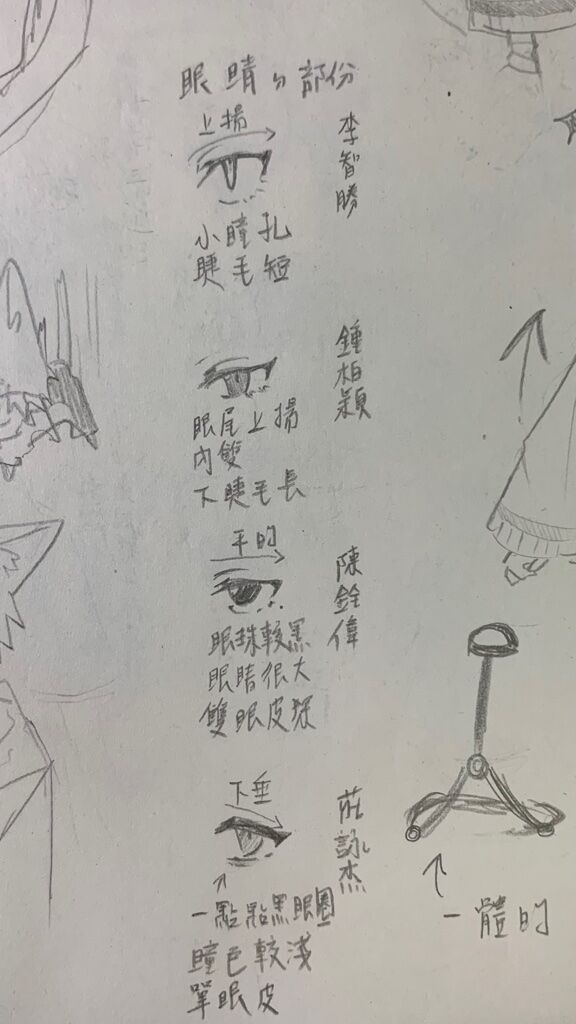 眼睛的部份
上揚
李智勝
小瞳孔
睫毛短
鍾柏穎
眼尾上揚
內雙
下睫毛長
平的
陳銓偉
眼珠較黑
眼睛很大
雙眼皮深
下垂
莊詠杰
一點點黑眼圈
瞳色較淺
單眼皮
一體的